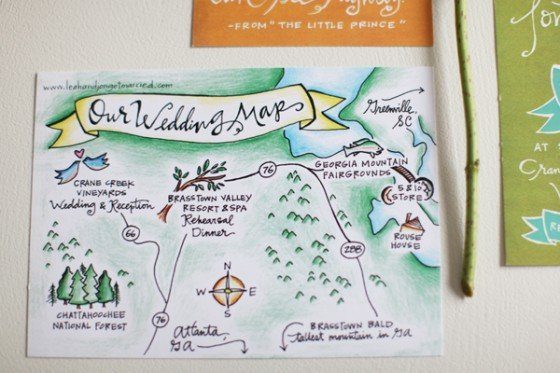 -FROM "THE LITTLE PRINCE"
www.leahandjongetmarried.com
Our Wedding Map
Greenville,
SC
CRANE CREEK
VINEYARDS
Wedding & Reception
BRASSTOWN VALLEY
RESORT & SPA
Rehearsal
Dinner
76
GEORGIA MOUNTAIN
FAIRGROUNDS
5 & 10
STORE
ROUSE
HOUSE
66
288
N
W
E
S
CHATTAHOOCHEE
NATIONAL FOREST
76
Atlanta,
GA
BRASSTOWN BALD
tallest mountain in GA
AT